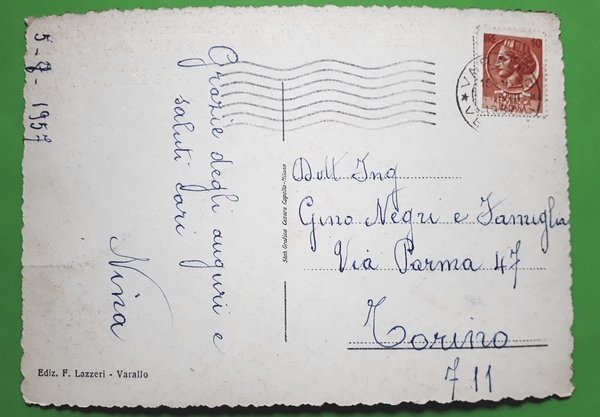 5-8-1957
Grazie degli auguri e
saluti cari
Nina
Ediz. F. Lazzeri - Varallo
Stab. Grafico Cesare Capello-Milano
10
Dott Ing
Gino Negri e Famiglia
Via Parma 47
Torino
711